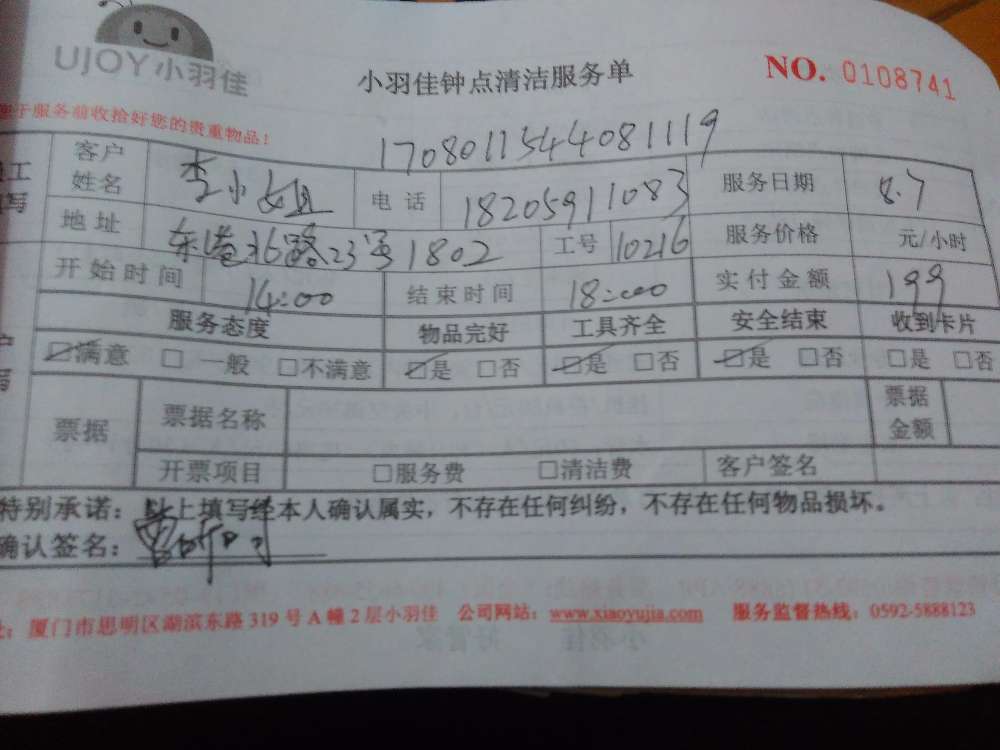 UJOY小羽佳
小羽佳钟点清洁服务单 NO. 0108741
于服务前收拾好您的贵重物品!
1708011544081119
客户姓名 李小姐 电话 18205911083 服务日期 8.7
地址 东港北路23号1802 工号 10216 服务价格 元/小时
开始时间 14:00 结束时间 18:00 实付金额 199
服务态度 物品完好 工具齐全 安全结束 收到卡片
☑满意 □一般 □不满意 ☑是 □否 ☑是 □否 ☑是 □否 □是 □否
票据 票据名称 票据金额
开票项目 □服务费 □清洁费 客户签名
特别承诺：以上填写经本人确认属实，不存在任何纠纷，不存在任何物品损坏。
确认签名：
址：厦门市思明区湖滨东路 319 号 A 幢 2 层小羽佳 公司网站：www.xiaoyujia.com 服务监督热线：0592-5888123